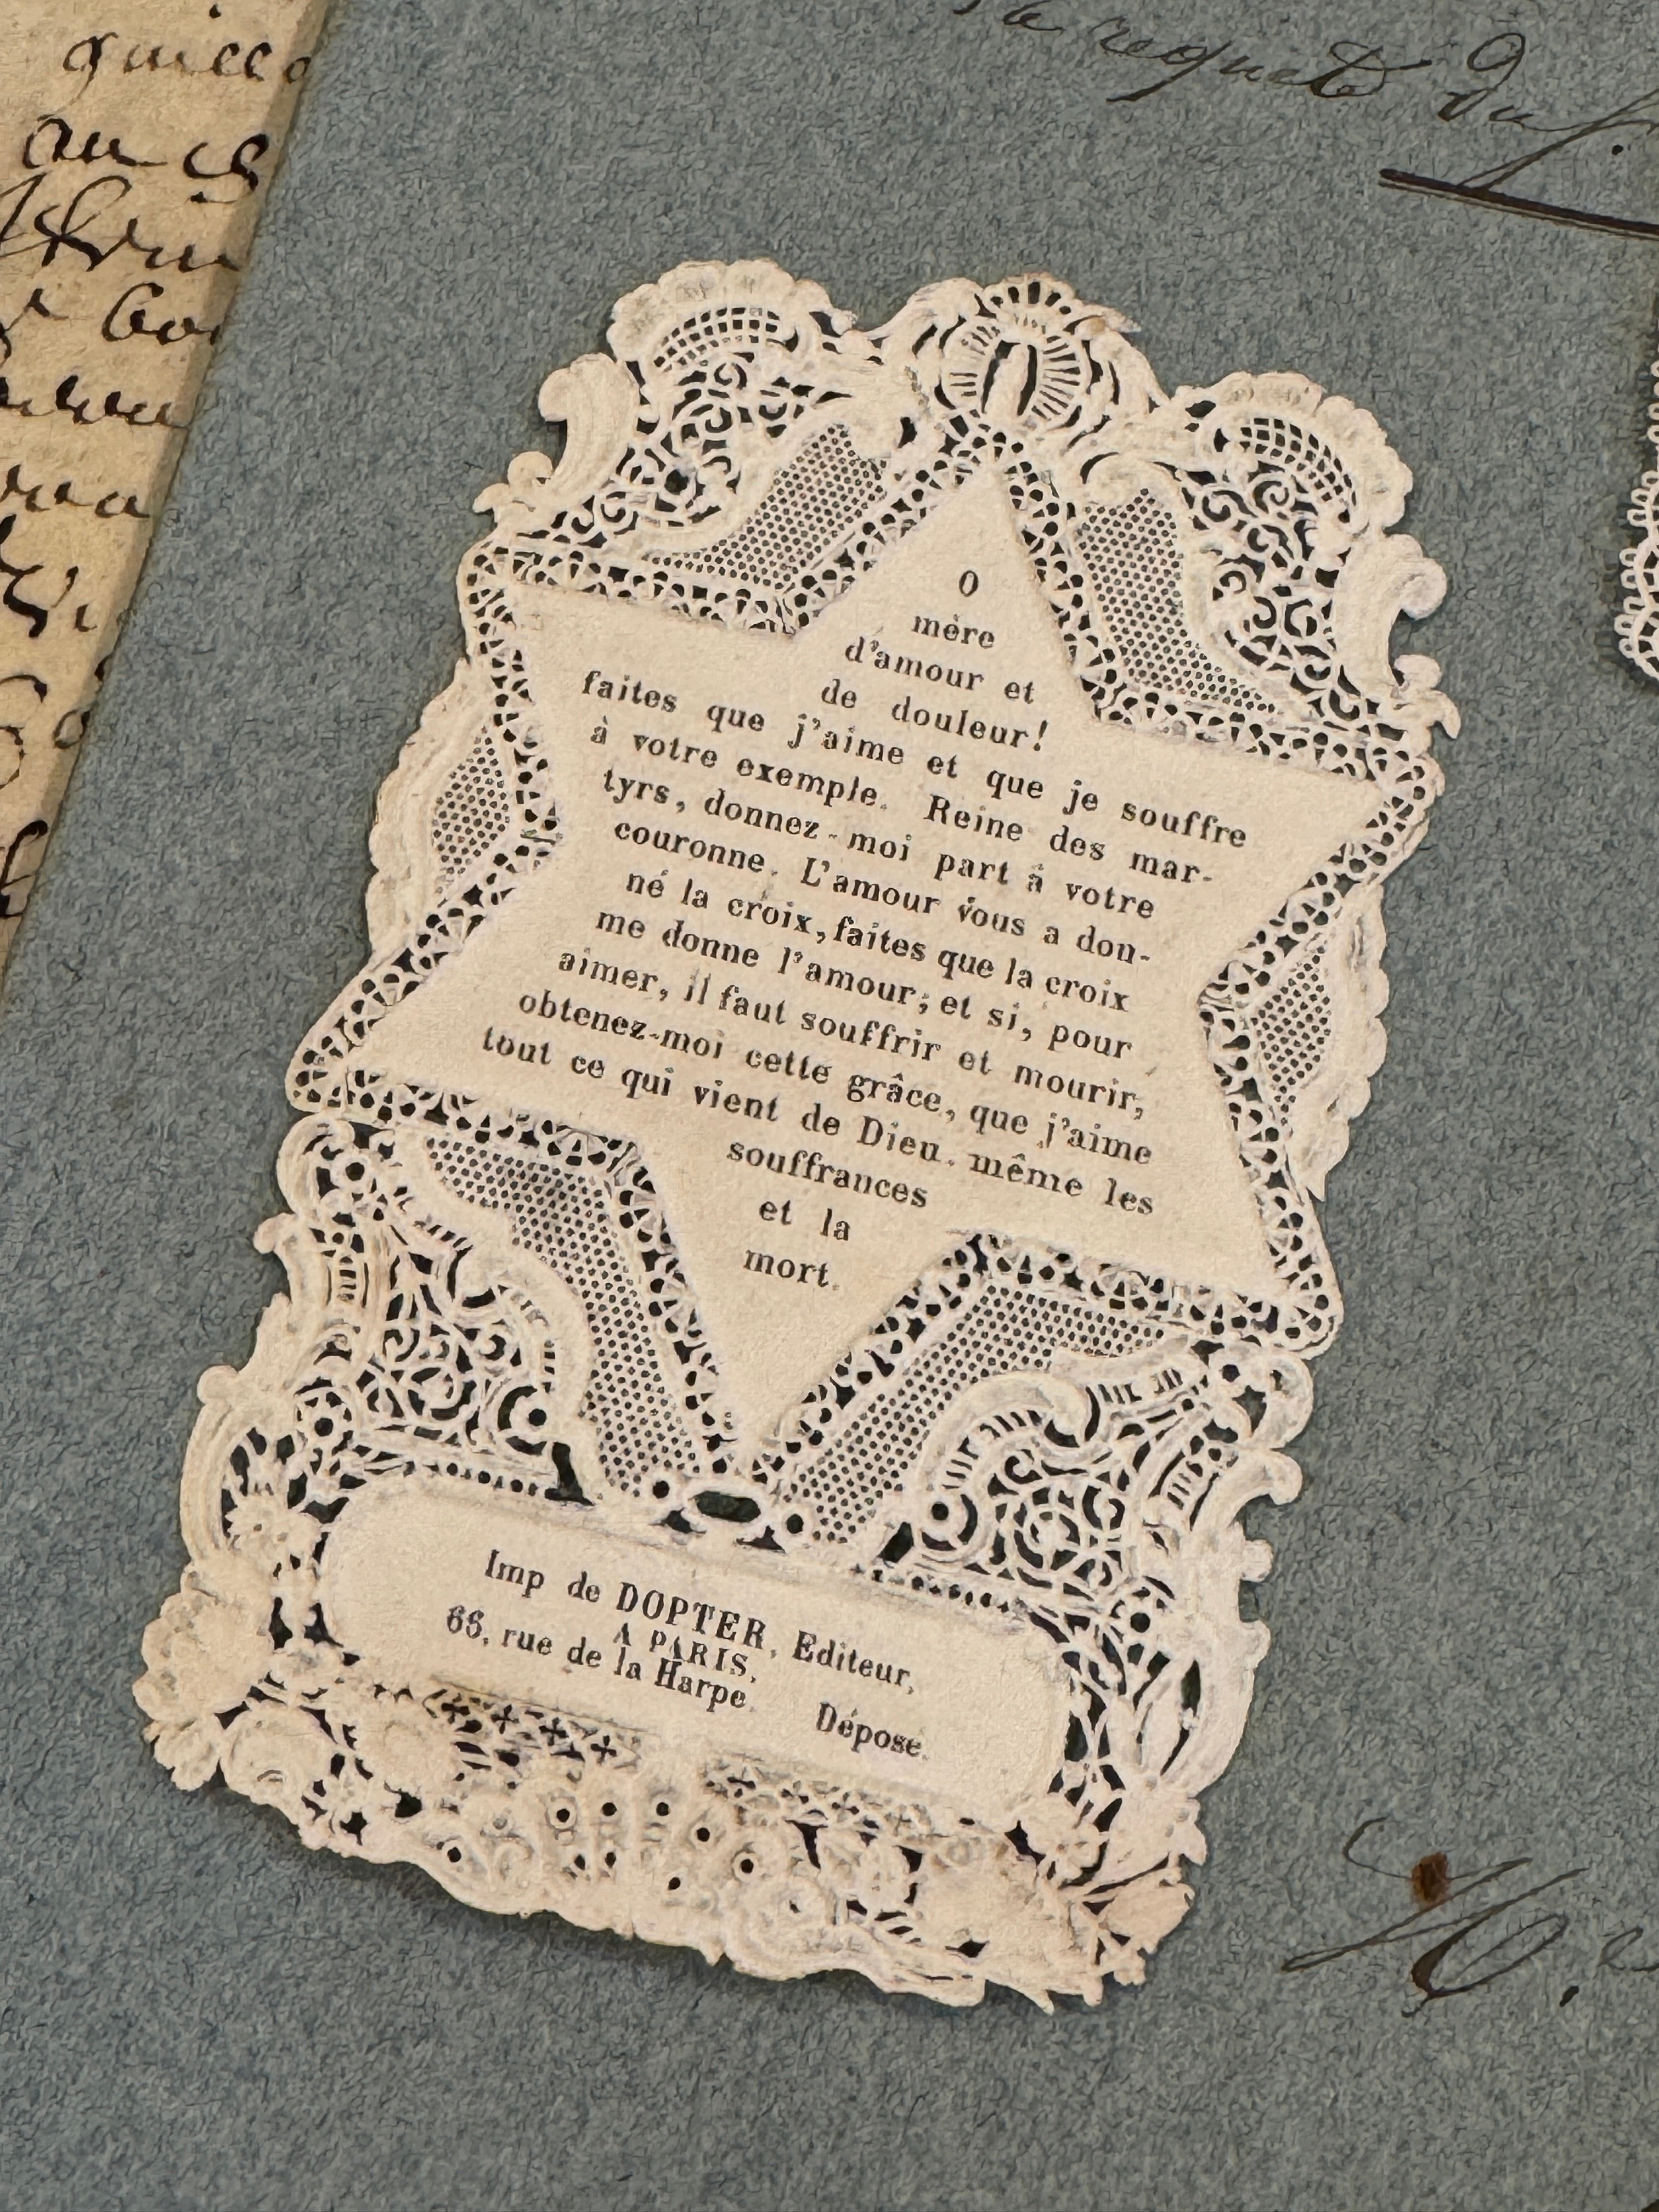 O
mère
d'amour et
de douleur!
faites que j'aime et que je souffre
à votre exemple. Reine des mar-
tyrs, donnez-moi part à votre
couronne. L'amour vous a don-
né la croix, faites que la croix
me donne l'amour; et si, pour
aimer, il faut souffrir et mourir,
obtenez-moi cette grâce, que j'aime
tout ce qui vient de Dieu. même les
souffrances
et la
mort.
Imp de DOPTER, Editeur,
A PARIS,
66, rue de la Harpe.
Déposé.
requete du